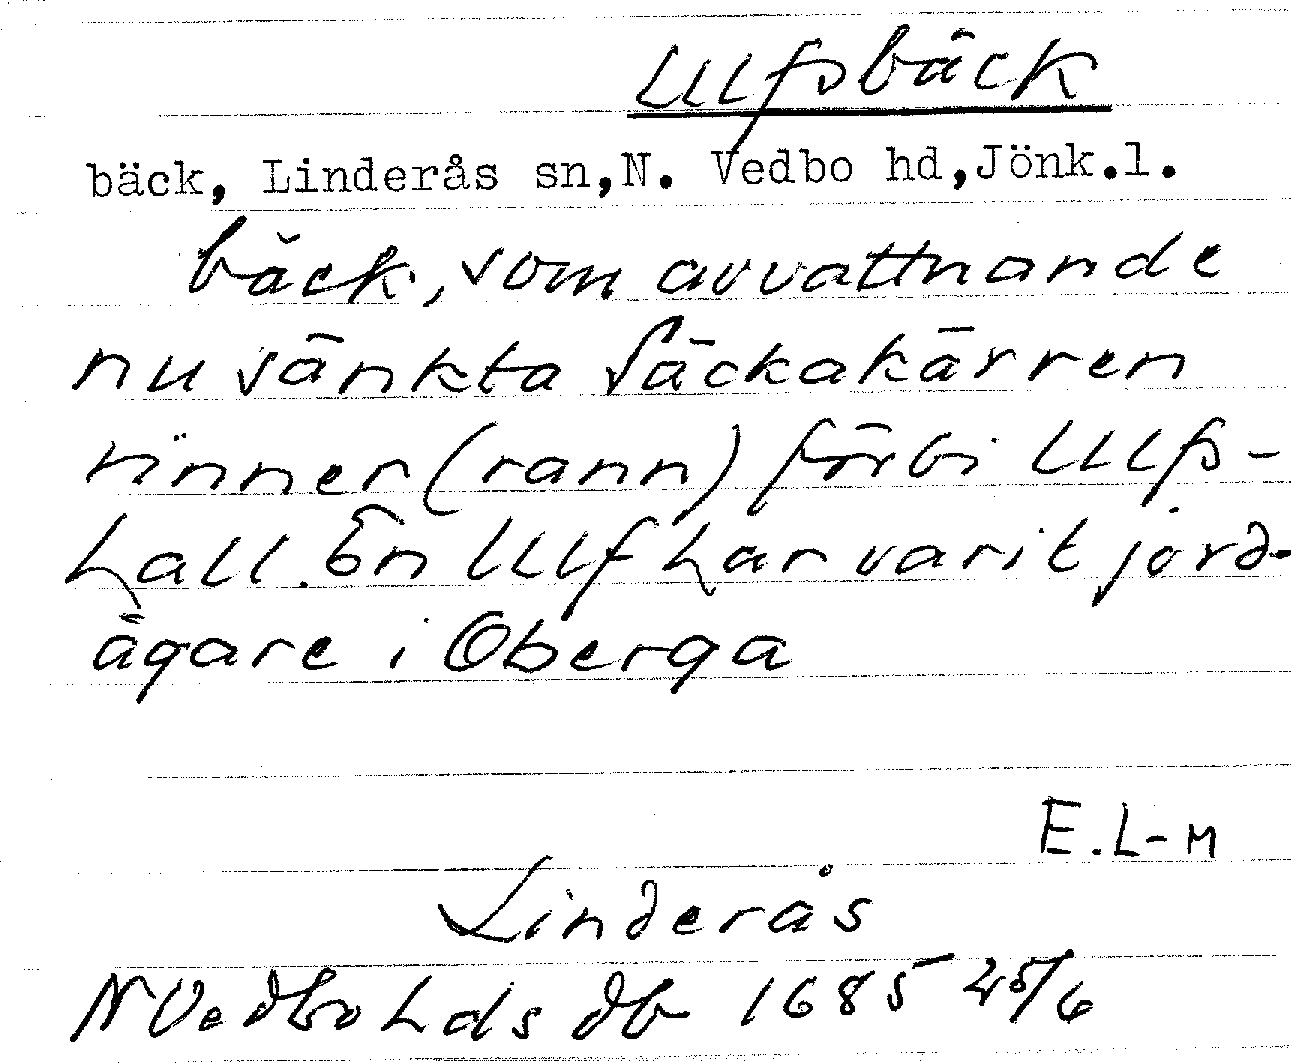 Ulfsbäck
bäck, Linderås sn, N. Vedbo hd, Jönk.l.
bäck, som avvattnande
nu sänkta Säckakärren
rinner (rann) förbi Ulfs-
hall. En Ulf har varit jord-
ägare i Oberga
E.L-M
Linderås
N Vedbo hds db 1685 25/6